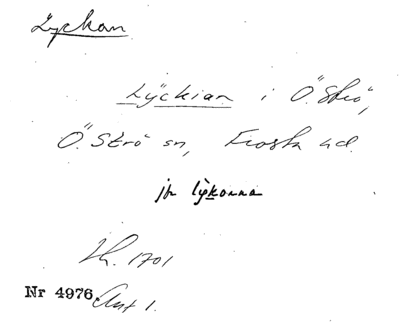 Lyckan
Lÿckian i Ö. Strö,
Ö. Strö sn, Frosta hd.
jfr lỳkorna
Lh. 1701
Nr 4976. Ant 1.